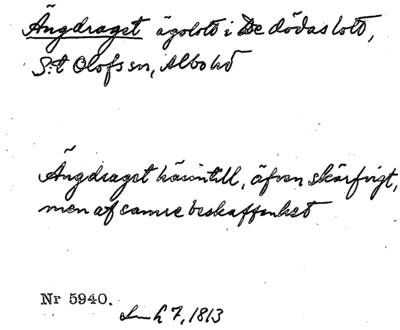 Ängdraget ägolott i De dödas lott,
S:t Olofs sn, Albo hd
Ängdraget härintill, äfven skärfvigt,
men af samre beskaffenhet
Nr 5940.
7, 1813